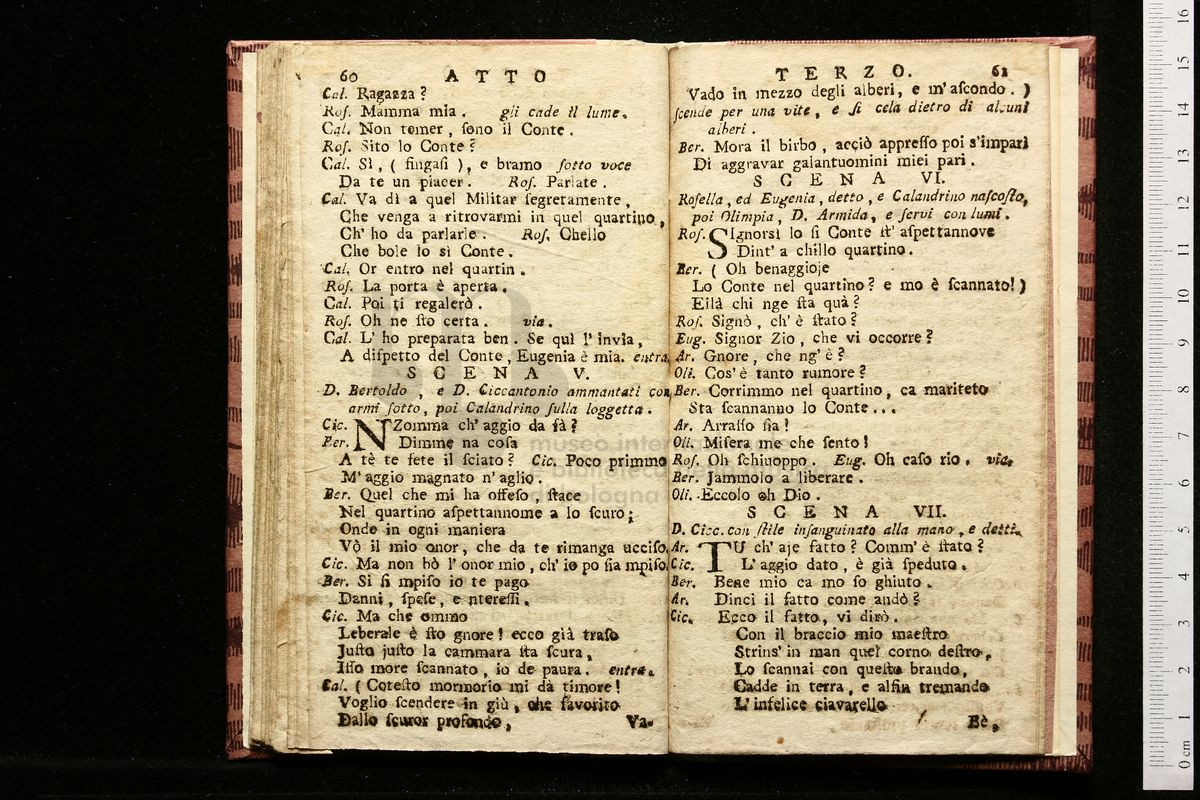 60 ATTO
Cal. Ragazza ?
Roſ. Mamma mia . gli cade il lume .
Cal. Non temer , ſono il Conte .
Roſ. Sito lo Conte ?
Cal. Sì , ( fingaſi ) , e bramo ſotto voce
Da te un piacer . Roſ. Parlate .
Cal. Va dì a quel Militar ſegretamente ,
Che venga a ritrovarmi in quel quartino ,
Ch' ho da parlarle . Roſ. Chello
Che bole lo si Conte .
Cal. Or entro nel quartin .
Roſ. La porta è aperta .
Cal. Poi ti regalerò .
Roſ. Oh ne ſto certa . via .
Cal. L' ho preparata ben . Se quì l' invia ,
A diſpetto del Conte , Eugenia è mia . entra.
SCENA V.
D. Bertoldo , e D. Ciccantonio ammantati con
armi ſotto , poi Calandrino ſulla loggetta .
Cic. NZomma ch' aggio da fà ?
Ber. Dimme na coſa
A tè te fete il ſciato ? Cic. Poco primmo
M' aggio magnato n' aglio .
Ber. Quel che mi ha offeſo , ſtace
Nel quartino aſpettannome a lo ſcuro ;
Onde in ogni maniera
Vò il mio onor , che da te rimanga ucciſo.
Cic. Ma non bò l' onor mio , ch' io po ſia mpiſo.
Ber. Si ſi mpiſo io te pago
Danni , ſpeſe , e ntereſſi .
Cic. Ma che ommo
Leberale è ſto gnore ! ecco già traſo
Juſto juſto la cammara ſta ſcura ,
Iſſo more ſcannato , io de paura . entra.
Cal. ( Coteſto mormorio mi dà timore !
Voglio ſcendere in giù , che favorito
Dallo ſcuror profondo ,
Va-
TERZO. 61
Vado in mezzo degli alberi , e m' aſcondo . )
ſcende per una vite , e ſi cela dietro di alcuni
alberi .
Ber. Mora il birbo , acciò appreſſo poi s'impari
Di aggravar galantuomini miei pari .
SCENA VI.
Roſella , ed Eugenia , detto , e Calandrino naſcoſto,
poi Olimpia , D. Armida , e ſervi con lumi .
Roſ. SIgnorsì lo ſi Conte ſt' aſpettannove
Dint' a chillo quartino .
Ber. ( Oh benaggioje
Lo Conte nel quartino ? e mo è ſcannato! )
Eilà chi nge ſta quà ?
Roſ. Signò , ch' è ſtato ?
Eug. Signor Zio , che vi occorre ?
Ar. Gnore , che ng' è ?
Oli. Cos' è tanto rumore ?
Ber. Corrimmo nel quartino , ca mariteto
Sta ſcannanno lo Conte . . .
Ar. Arraſſo ſia !
Oli. Miſera me che ſento !
Roſ. Oh ſchiuoppo . Eug. Oh caſo rio . via.
Ber. Jammolo a liberare .
Oli. Eccolo oh Dio .
SCENA VII.
D. Cicc. con ſtile inſanguinato alla mano , e detti.
Ar. TU ch' aje fatto ? Comm' è ſtato ?
Cic. L' aggio dato , è già ſpeduto .
Ber. Bene mio ca mo ſo ghiuto .
Ar. Dinci il fatto come andò ?
Cic. Ecco il fatto , vi dirò .
Con il braccio mio maeſtro
Strinſ' in man quel corno deſtro ,
Lo ſcannai con queſto brando ,
Cadde in terra , e alfin tremando
L' infelice ciavarello
Bè,